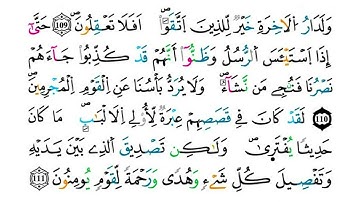 وَلَدَارُ الْاٰخِرَةِ خَيْرٌ لِّلَّذِينَ اتَّقَوْاۗ اَفَلَا تَعْقِلُوْنَ ۝109 حَتّٰىٓ
إِذَا اسْتَيْـَٔسَ الرُّسُلُ وَظَنُّوْٓا اَنَّهُمْ قَدْ كُذِبُوْا جَاۤءَهُمْ
نَصْرُنَا فَنُجِّيَ مَنْ نَّشَاۤءُۗ وَلَا يُرَدُّ بَأْسُنَا عَنِ الْقَوْمِ الْمُجْرِمِيْنَ
۝110 لَقَدْ كَانَ فِيْ قَصَصِهِمْ عِبْرَةٌ لِّاُولِى الْاَلْبَابِۗ مَا كَانَ
حَدِيْثًا يُّفْتَرٰى وَلٰكِنْ تَصْدِيْقَ الَّذِيْ بَيْنَ يَدَيْهِ
وَتَفْصِيْلَ كُلِّ شَيْءٍ وَّهُدًى وَّرَحْمَةً لِّقَوْمٍ يُّؤْمِنُوْنَ ۝111